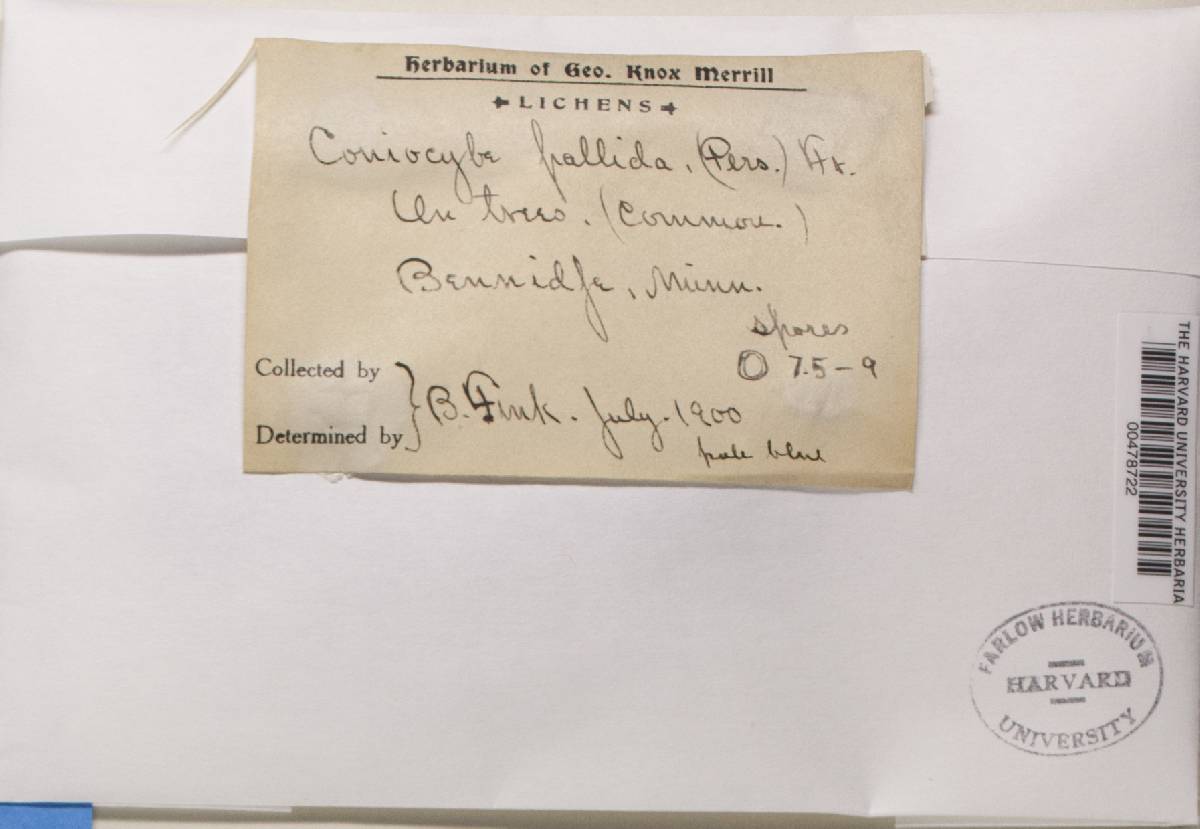 Herbarium of Geo. Knox Merrill
LICHENS
Coniocybe pallida, (Pers.) Fr.
On trees. (Common.)
Bennidje, Minn.
spores
7.5 – 9
Collected by
Determined by
B. Fink. July. 1900
pale blue
THE HARVARD UNIVERSITY HERBARIA
00478722
FARLOW HERBARIUM
HARVARD
UNIVERSITY